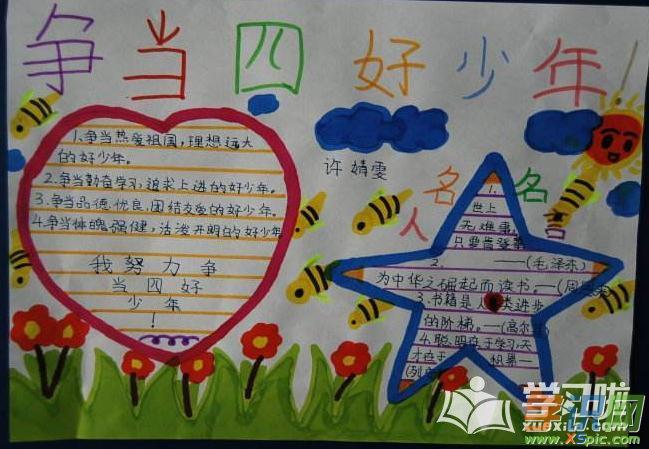 争当四好少年!
许婧雯
1.争当热爱祖国,理想远大
的好少年。
2.争当勤奋学习,追求上进的好少年。
3.争当品德优良,团结友爱的好少年。
4.争当体魄强健,活泼开朗的好少年
我努力争
当四好
少年
!
名人名言
1.
世上
无难事,
只要肯登攀
2. ——(毛泽东)
为中华之崛起而读书。—(周恩来
3.书籍是人类进步
的阶梯。—(高尔基)
4.聪明在于学习,天
才在于 积累—
(列
学习啦
xuexila.com
www.XSpic.com